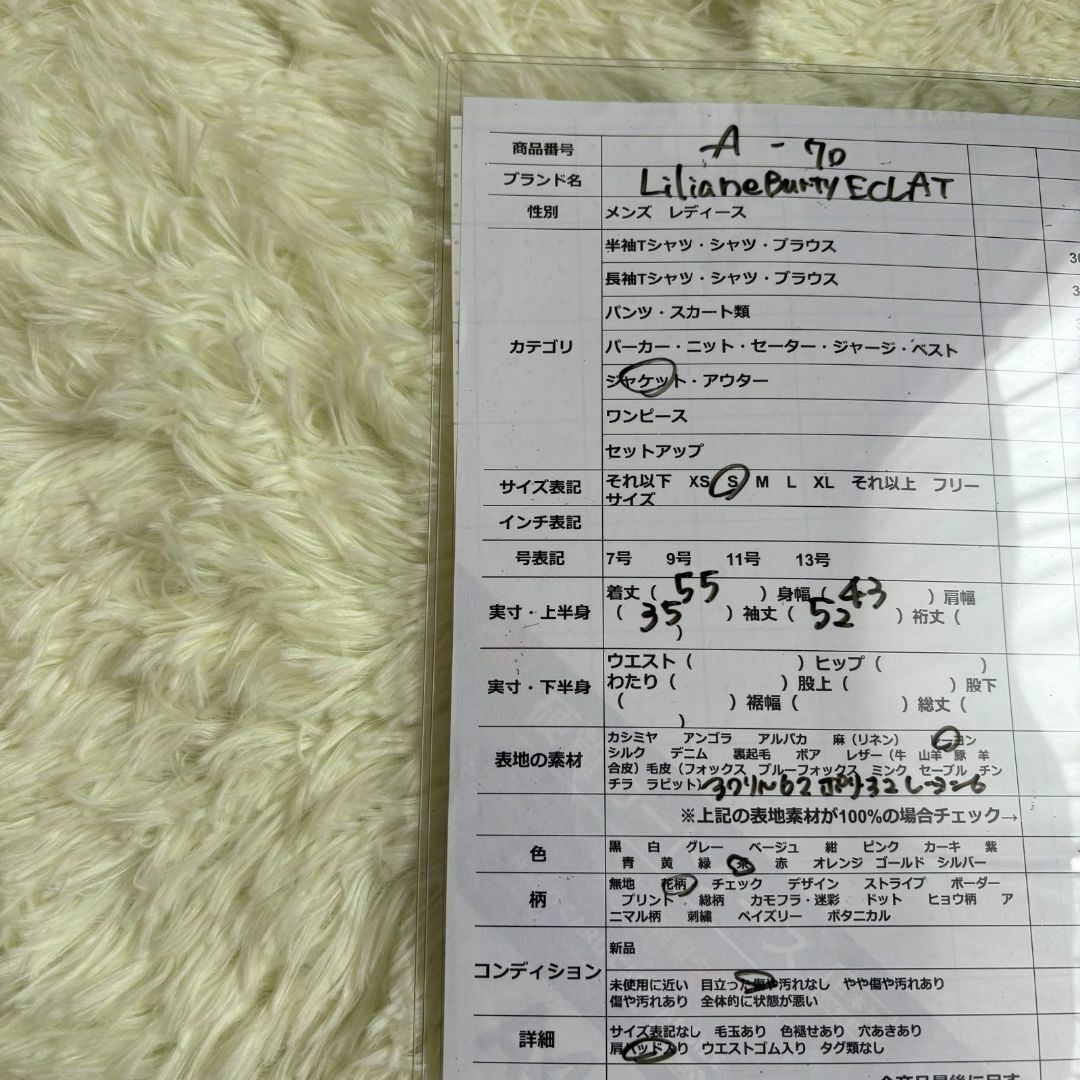 商品番号 A - 70
ブランド名 LilianeBurty ECLAT
性別 メンズ レディース
カテゴリ
半袖Tシャツ・シャツ・ブラウス
30
長袖Tシャツ・シャツ・ブラウス
3
パンツ・スカート類
パーカー・ニット・セーター・ジャージ・ベスト
ジャケット・アウター
ワンピース
セットアップ
サイズ表記 それ以下 XS S M L XL それ以上 フリー
サイズ
インチ表記
号表記 7号 9号 11号 13号
実寸・上半身
着丈( 55 )身幅( 43 )肩幅
( 35 )袖丈( 52 )裄丈(
)
実寸・下半身
ウエスト( )ヒップ( )
わたり( )股上( )股下
( )裾幅( )総丈(
)
表地の素材
カシミヤ アンゴラ アルパカ 麻(リネン) レーヨン
シルク デニム 裏起毛 ボア レザー(牛 山羊 豚 羊
合皮)毛皮(フォックス ブルーフォックス ミンク セーブル チン
チラ ラビット)アクリル62 ポリ32 レーヨン6
※上記の表地素材が100%の場合チェック→
色
黒 白 グレー ベージュ 紺 ピンク カーキ 紫
青 黄 緑 茶 赤 オレンジ ゴールド シルバー
柄
無地 花柄 チェック デザイン ストライプ ボーダー
プリント 総柄 カモフラ・迷彩 ドット ヒョウ柄 ア
ニマル柄 刺繍 ペイズリー ボタニカル
コンディション
新品
未使用に近い 目立った傷や汚れなし やや傷や汚れあり
傷や汚れあり 全体的に状態が悪い
詳細
サイズ表記なし 毛玉あり 色褪せあり 穴あきあり
肩パッド入り ウエストゴム入り タグ類なし